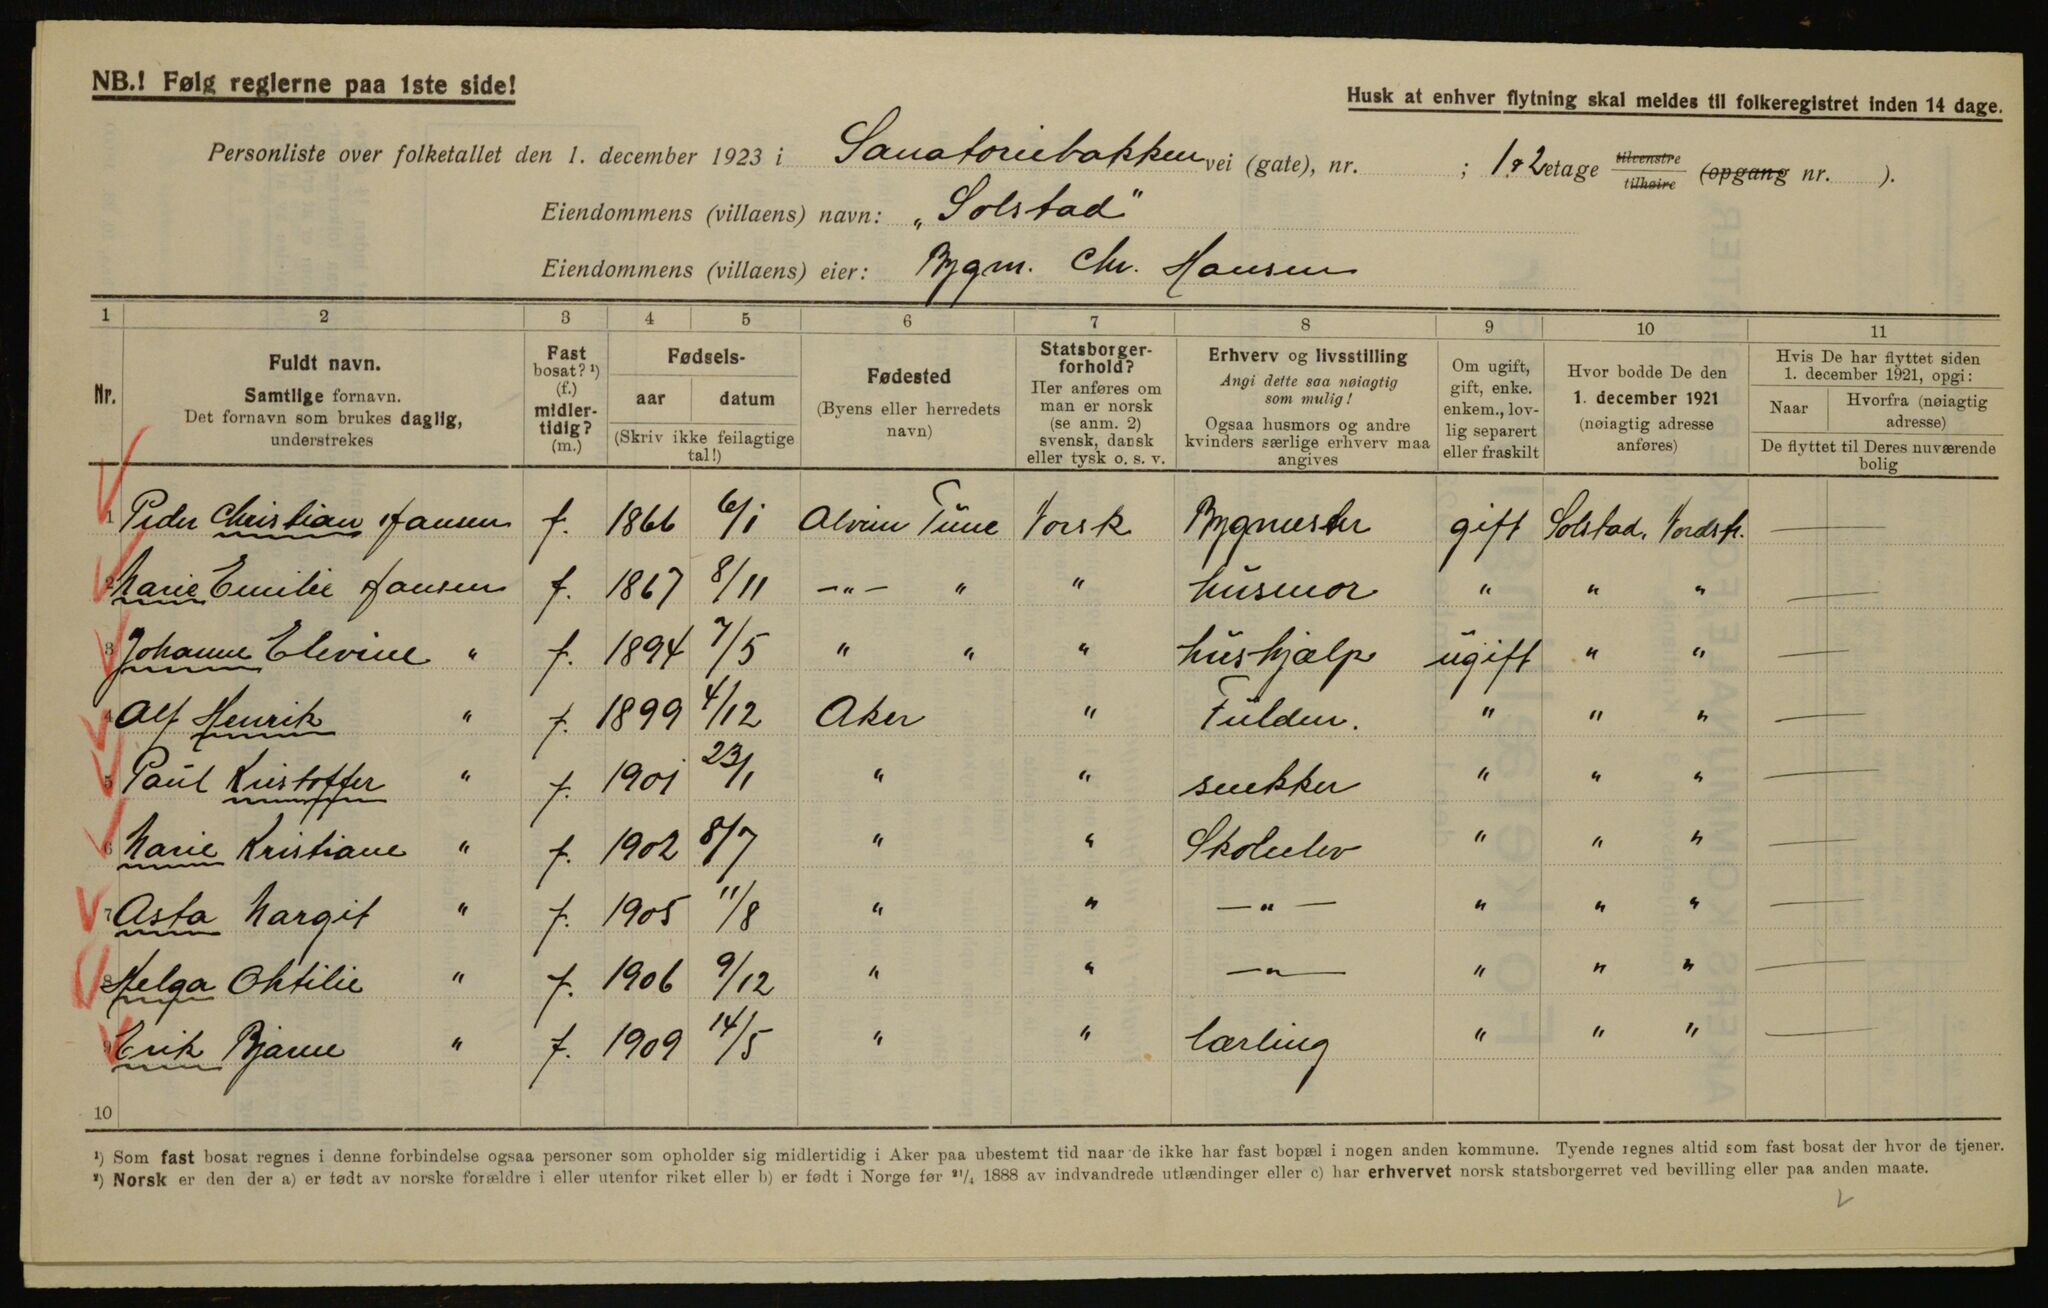 NB.! Følg reglerne paa 1ste side!
Husk at enhver flytning skal meldes til folkeregistret inden 14 dage.
Personliste over folketallet den 1. december 1923 i Sanatoriebakken vei (gate), nr. ; 1 & 2 etage tilvenstre tilhøire (opgang nr. ).
Eiendommens (villaens) navn: „Solstad"
Eiendommens (villaens) eier: Bygm. Chr. Hansen
1 2 3 4 5 6 7 8 9 10 11
Nr.
Fuldt navn.
Samtlige fornavn.
Det fornavn som brukes daglig,
understrekes
Fast
bosat? ¹)
(f.)
midler-
tidig?
(m.)
Fødsels-
aar datum
(Skriv ikke feilagtige
tal!)
Fødested
(Byens eller herredets
navn)
Statsborger-
forhold?
Her anføres om
man er norsk
(se anm. 2)
svensk, dansk
eller tysk o. s. v.
Erhverv og livsstilling
Angi dette saa nøiagtig
som mulig!
Ogsaa husmors og andre
kvinders særlige erhverv maa
angives
Om ugift,
gift, enke.
enkem., lov-
lig separert
eller fraskilt
Hvor bodde De den
1. december 1921
(nøiagtig adresse
anføres)
Hvis De har flyttet siden
1. december 1921, opgi:
Naar
Hvorfra (nøiagtig
adresse)
De flyttet til Deres nuværende
bolig
1 Peder Christian Hansen f. 1866 6/1 Alvim Tune Norsk Bygmester gift Solstad, Nordstr. —
2 Marie Emilie Hansen f. 1867 8/11 —"— " " husmor " " " —
3 Johanne Elevine " f. 1894 7/5 " " " hushjælp ugift " " —
4 Alf Henrik " f. 1899 4/12 Aker " " " " —
5 Paul Kristoffer " f. 1901 23/1 " " snekker " " " —
6 Marie Kristiane " f. 1902 8/7 " " Skoleelev " " " —
7 Asta Margit " f. 1905 11/8 " " —"— " " " —
8 Helga Ohtilie " f. 1906 9/12 " " —"— " " " —
9 Erik Bjarne " f. 1909 14/5 " " lærling " " " —
10
¹) Som fast bosat regnes i denne forbindelse ogsaa personer som opholder sig midlertidig i Aker paa ubestemt tid naar de ikke har fast bopæl i nogen anden kommune. Tyende regnes altid som fast bosat der hvor de tjener.
²) Norsk er den der a) er født av norske forældre i eller utenfor riket eller b) er født i Norge før ²¹/₄ 1888 av indvandrede utlændinger eller c) har erhvervet norsk statsborgerret ved bevilling eller paa anden maate.